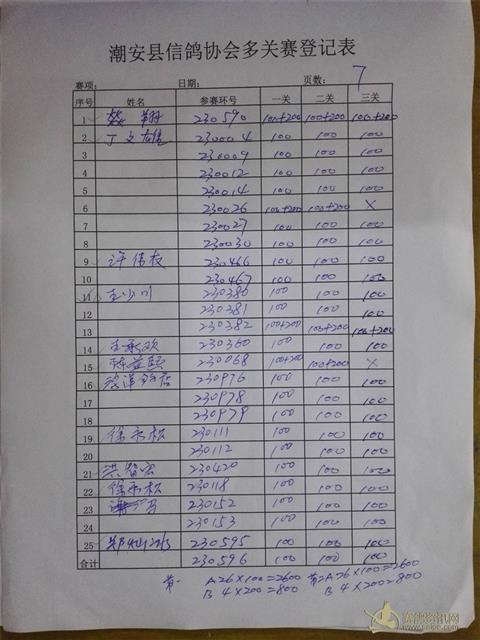 潮安县信鸽协会多关赛登记表
赛项: 日期: 页数: 7
序号 姓名 参赛环号 一关 二关 三关
1 翔 230590 100+200 100+200 100+200
2 丁文雄 230004 100 100 100
3 230009 100 100 100
4 230012 100 100 100
5 230014 100 100 100
6 230026 100+200 100+200 ×
7 230027 100 100 100
8 230030 100 100 100
9 许伟枝 230466 100 100 100
10 230467 100 100 100
11 王少川 230386 100 100 100
12 230381 100 100 100
13 230382 100+200 100+200 100+200
14 王彩欢 230360 100 100 100
15 陈益 230068 100+200 100+200 ×
16 230976 100 100 100
17 230978 100 100 100
18 230979 100 100 100
19 徐永松 230111 100 100 100
20 230112 100 100 100
21 洪 230420 100 100 100
22 徐永松 230118 100 100 100
23 230152 100 100 100
24 230153 100 100 100
25 郑 230595 100 100 100
合计 230596 100 100 100
第一 A26×100=2600 第二A26×100=2600
B 4×200=800 B 4×200=800